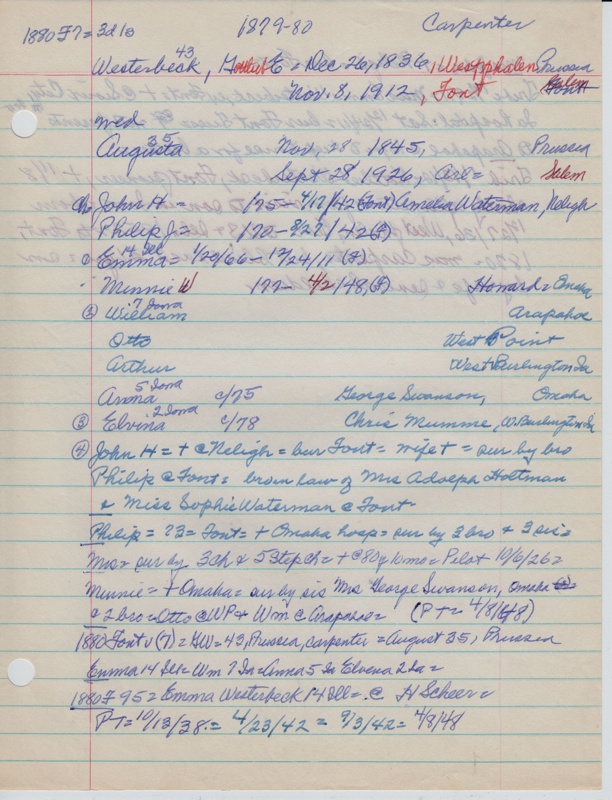 1880 F7 = 3d 10 1879-80 Carpenter
Westerbeck, 43 E = Dec 26, 1836, Westphalen Prussia
Nov. 8, 1912, Font
wed
Augusta 35 Nov, 28 1845, Prussia
Sept 28 1926, are = Salem
Ch John H = 175- 4/12/42 (Font) Amelia Waterman, Neligh
Philip J = 170- 8/27/42 (F)
Emma = 14 Ill 1/20/66 - 12/24/11 (F)
Minnie W 177- 4/2/48, (F) Howard = Omaha
② William 7 Iowa Arapahoe
Otto West Point
Arthur West Burlington Ia
Anna 5 Iowa c/75 George Swanson, Omaha
③ Elvina 2 Iowa c/78 Chris Mumme, W. Burlington Ia
④ John H = + @ Neligh = bur Font = wife + = sur by bro
Philip @ Font = bro in law of Mrs Adolph Holtman
& Miss Sophie Waterman @ Font
Philip = 73 = Font = + Omaha hosp = sur by 2 bro & 3 sis =
Mrs = sur by 3 ch & 5 Step ch = + @ 80 y 10 mo = Pilot 10/6/26 =
Minnie = + Omaha = sur by sis Mrs George Swanson, Omaha
& 2 bro = Otto @ WP & Wm @ Arapahoe = (PT = 4/8/48)
1880 Font v (7) = HW = 43, Prussia, carpenter = August 35, Prussia
Emma 14 Ill = Wm 7 Ia = Anna 5 Ia Elvena 2 Ia =
1880 F 95 = Emma Westerbeck 14 Ill = @ H Scheer =
PT = 10/13/38 = 4/23/42 = 9/3/42 = 4/8/48